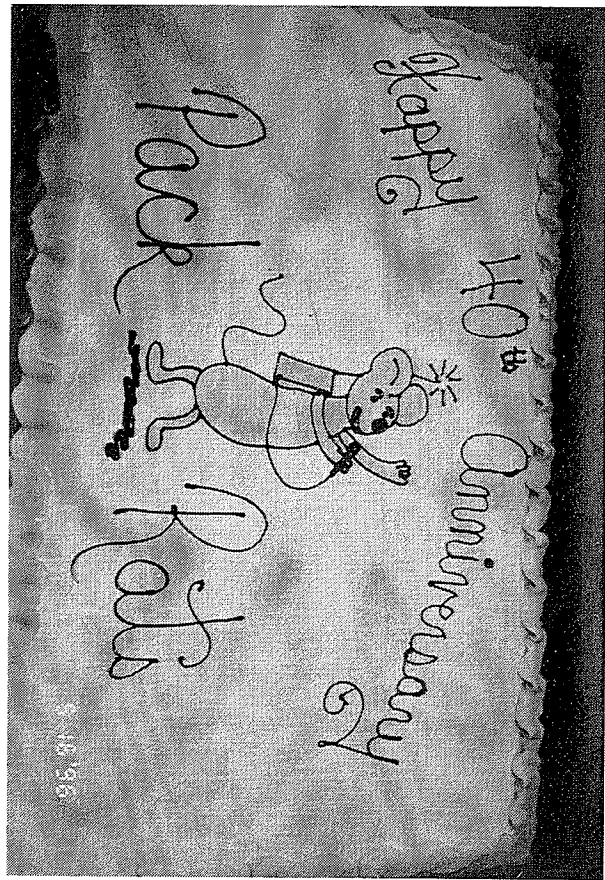 Happy 40th Anniversary
Pack Rats